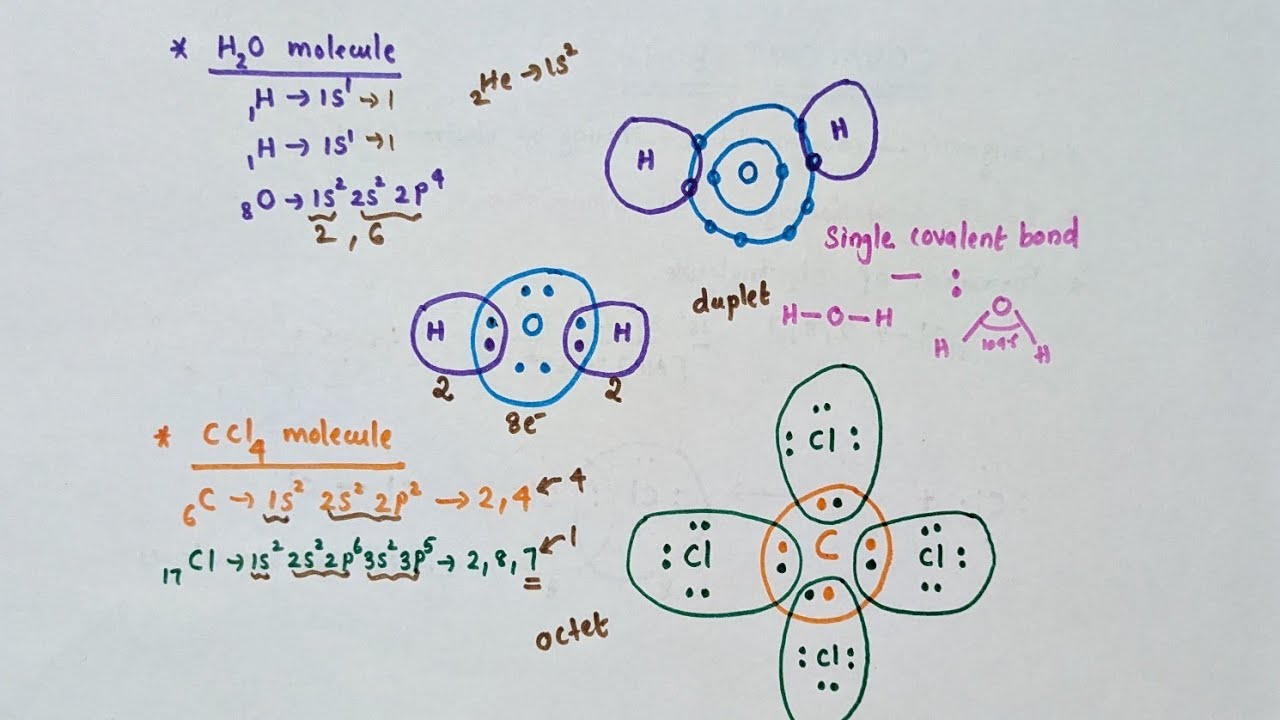 * H₂O molecule
₁H → 1s¹ → 1
₂He → 1s²
₁H → 1s¹ → 1
₈O → 1s² 2s² 2p⁴
2 , 6
H O H
Single covalent bond
— :
duplet
H O H
H—O—H
O
H 104.5 H
2 8e⁻ 2
* CCl₄ molecule
₆C → 1s² 2s² 2p² → 2,4 ← 4
₁₇Cl → 1s² 2s² 2p⁶ 3s² 3p⁵ → 2,8,7 ← 1
octet
Cl
Cl C Cl
Cl